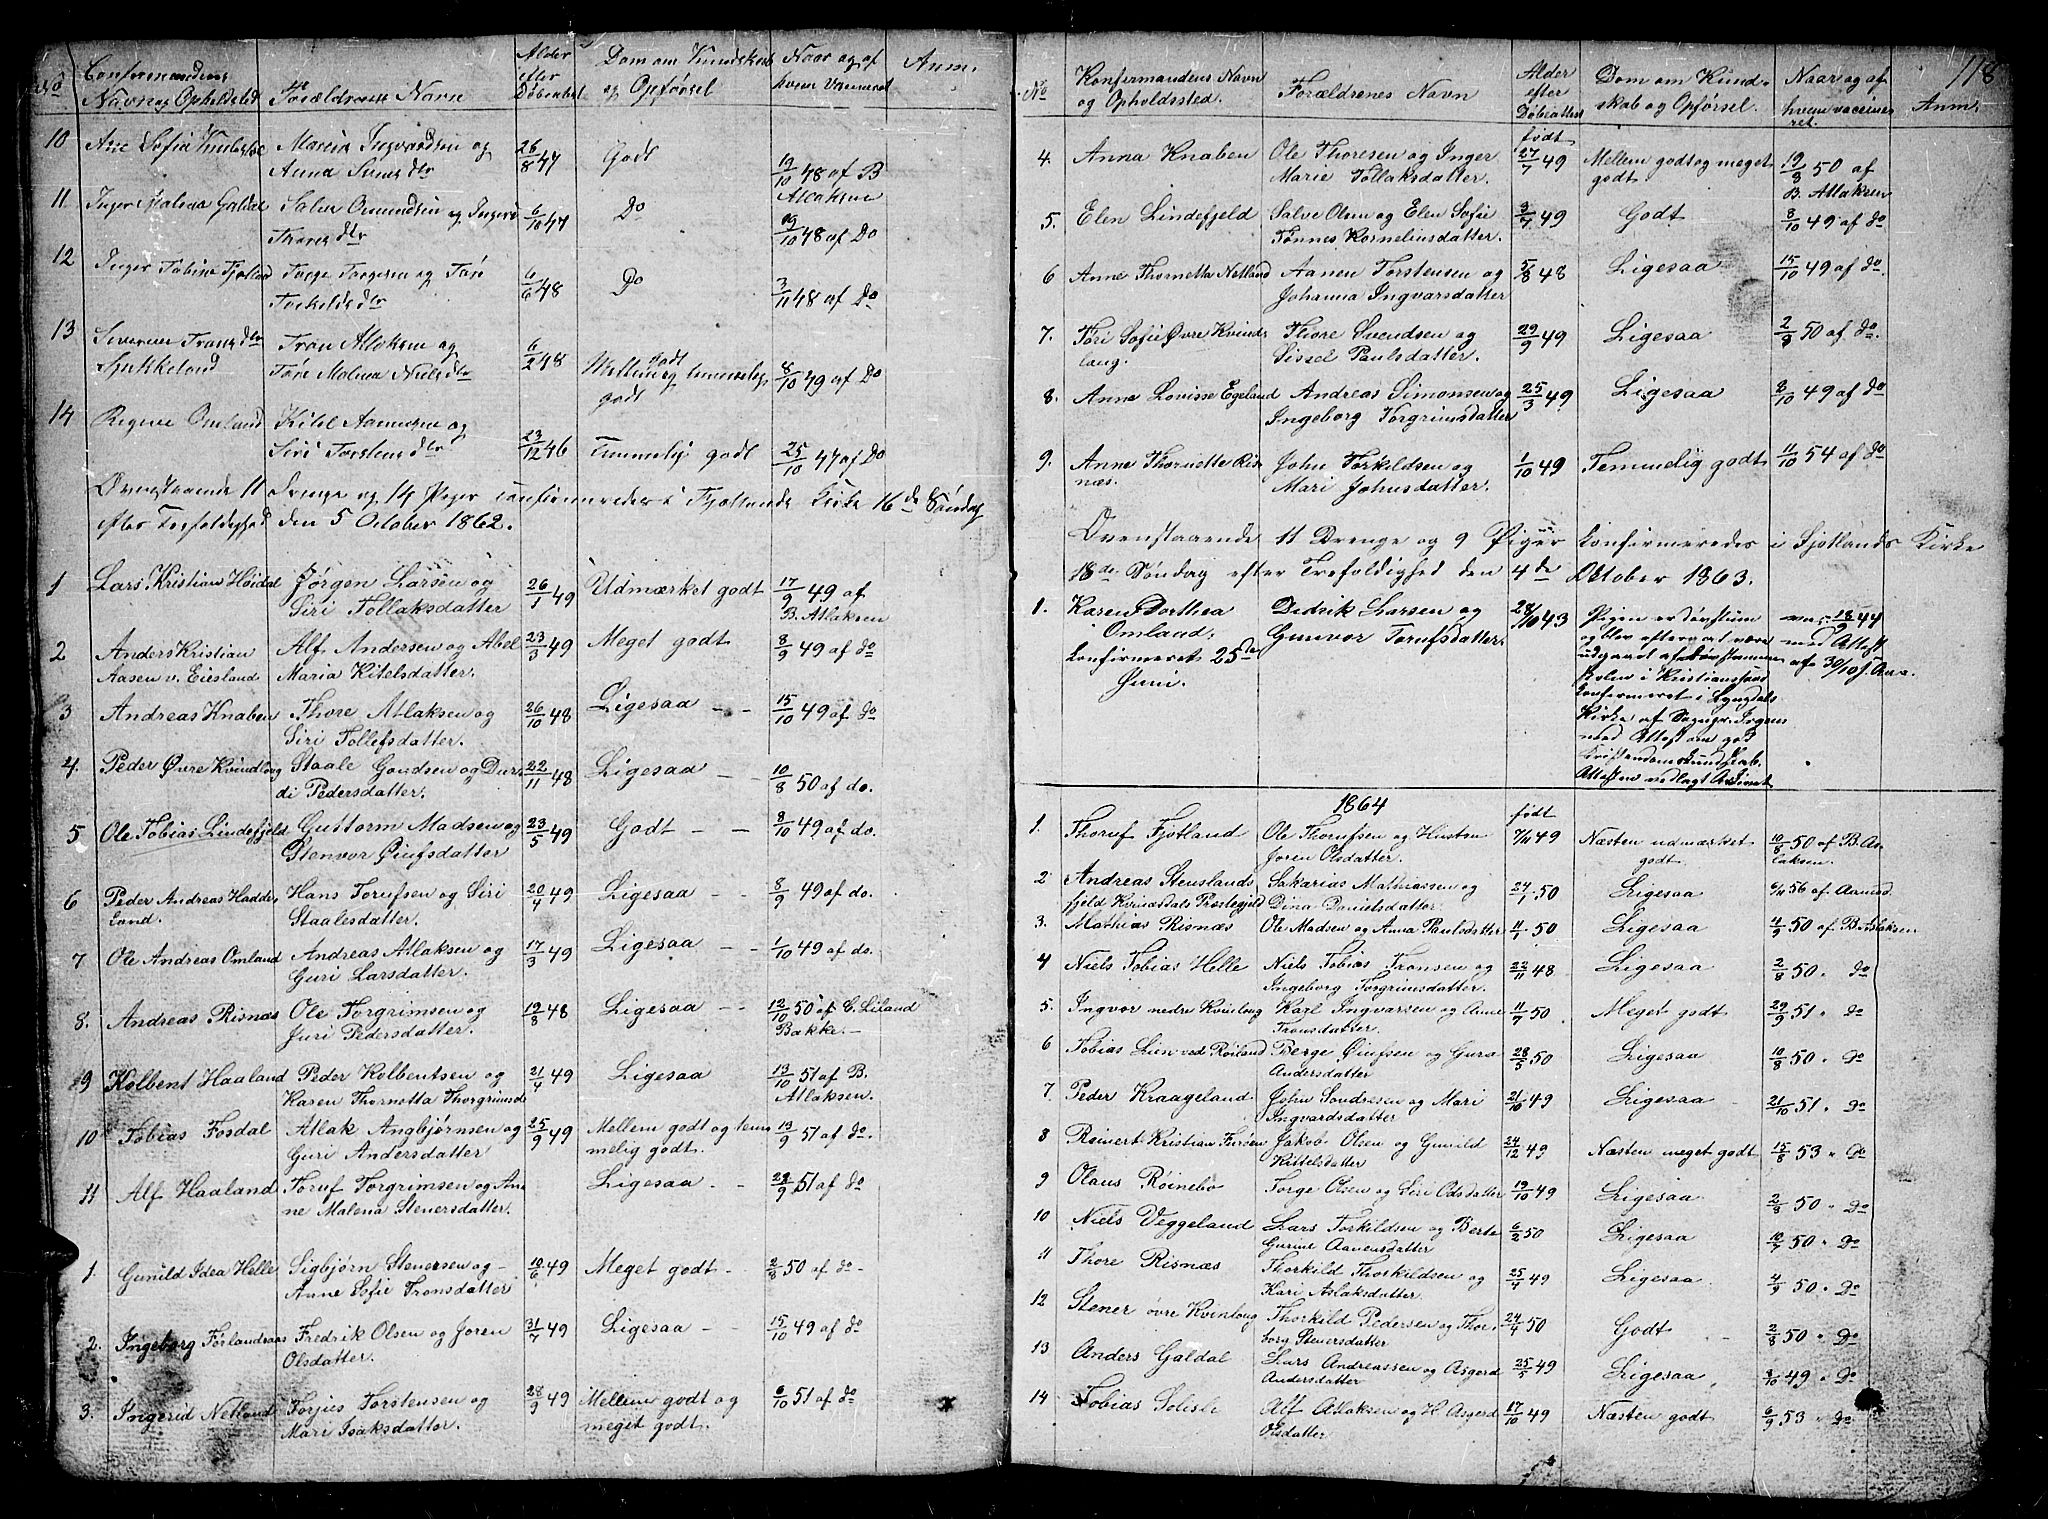 No Confirmandens Navn og Opholdsted Forældrenes Navn Alder efter Døbeattest Dom om Kundskab og Opførsel Naar og af hvem Vaccineret Anm.
10 Ane Sofia Marcus Ingvardsen og 26/8 47 Godt 19/10 48 af B
Anna dtr Atlaksen
11 Inger Malena Galdal Salve Omundsen og Ingeri 6/10 47 Do 19/10 48 af Do
Trons dtr
12 Inger Tobine Fjotland Tarje Torgersen og Tore 6/6 48 Do 3/11 48 af Do
Torkelds dtr
13 Severine Trons dtr Tron Atlaksen og 6/2 48 Mellem godt 8/10 49 af Do
Tore Malena Niels dtr og temmelig godt
14 Regine Omland Kitel Aanensen og 23/12 46 Temmelig godt 25/10 47 af Do
Siri Torstens dtr
Ovenstaaende 11 Drenge og 14 Piger confirmeredes i Fjotlands Kirke 16de Søndag
efter Trefoldighed den 5 October 1862.
1 Lars Kristian Høidal Jørgen Larsen og 26/1 49 Udmærket godt 17/9 49 af
Siri Tollaksdatter B. Atlaksen
2 Anders Kristian Alf Andersen og Abel 23/3 49 Meget godt 8/9 49 af do
Aasen v. Eiesland Maria Kitelsdatter.
3 Andreas Knaben Thore Atlaksen og 26/10 48 Ligesaa - - 15/10 49 af do
Siri Tollefsdatter.
4. Peder Øvre Kvindlog Staale Gundsen og Dur- 22/11 48 Ligesaa - - 10/8 50 af do.
di Pedersdatter.
5 Ole Tobias Lindefjeld Guttorm Madsen og 23/5 49 Godt - - 8/10 49 af do.
Stenvor Øiufsdatter
6 Peder Andreas Hadde- Hans Torufsen og Siri 20/4 49 Ligesaa - - 8/9 49 af do.
land. Staalesdatter.
7 Ole Andreas Omland Andreas Atlaksen og 17/3 49 Ligesaa - - 1/10 49 af do.
Guri Larsdatter.
8. Andreas Risnæs Ole Torgrimsen og 19/8 48 Ligesaa - - 12/10 50 af C. Liland
Juri Pedersdatter. Bakke. -
9 Kolbent Haaland Peder Kolbentsen og 21/4 49 Ligesaa 13/10 51 af B.
Karen Thornetta Thorgrimsd. Atlaksen.
10 Tobias Fosdal Atlak Angbjørnsen og 25/9 49 Mellem godt og tem- 13/9 51 af do.
Guri Andersdatter melig godt.
11 Alf Haaland Toruf Torgrimsen og An- Ligesaa - - 29/9 51 af do
ne Malena Stenersdatter.
1. Gunild Idea Helle Sigbjørn Stenersen og 10/6 49 Meget godt - 2/8 50 af do -
Anne Sofie Tronsdatter
2. Ingeborg Førlandsaas Fredrik Olsen og Joren 31/7 49 Ligesaa - - 15/10 49 af do
Olsdatter.
3. Ingerid Netland Torjus Torstensen og 28/9 49 Mellem godt og 6/10 51 af do
Mari Isaksdatter. meget godt.
118
No Konfirmandens Navn og Opholdssted. Forældrenes Navn Alder efter Døbeattest født Dom om Kundskab og Opførsel. Naar og af hvem vaccineret. Anm.
4. Anna Knaben Ole Thoresen og Inger 27/7 49 Mellem godt og meget 19/8 50 af
Marie Tollaksdatter. godt. B. Atlaksen
5. Elen Lindefjeld Salve Olsen og Elen Sofie 3/7 49 Godt 8/10 49 af do
Tønnes Korneliusdatter.
6 Anne Thornetta Netland Aanen Torstensen og 5/8 48 Ligesaa 15/10 49 af do.
Johanna Ingvarsdatter
7. Tori Sofie Øvre Kvind- Thore Svendsen og 29/9 49 Ligesaa 2/9 50 af do.
laug Sissel Paulsdatter.
8. Anne Lovisse Egeland Andreas Simonsen og 25/3 49 Ligesaa 8/10 49 af do
Ingeborg Torgrimsdatter
9. Anne Thornette Ris- John Torkildsen og 1/10 49 Temmelig godt 11/10 54 af do
næs. Mari Johnsdatter.
Ovenstaaende 11 Drenge og 9 Piger konfirmeredes i Fjotlands Kirke
18de Søndag efter Trefoldighed den 4de Oktober 1863.
1. Karen Dorthea Didrik Larsen og 28/10 43 Pigen er døvstum vac. 18/9 44
Omland, Gunvor Torufsdatter. og blev efter at være med Attest
konfirmeret 25de udgaaet af Døvstumme- af 30/10
Juni. skolen i Kristianssand
konfirmeret i Lyngdals
Kirke af Sogpr. Irgens
med Attest om god
Kristendomskundskab.
Attesten vedlagt Arkivet
1864 født
1. Thoruf Fjotland Ole Thorufsen og Husten 7/11 49 Næsten udmærket 10/8 50 af B. At-
Joren Olsdatter. godt laksen.
2 Andreas Stenslands- Sakarias Mathiassen og 27/1 50 Ligesaa 6/11 56 af
fjeld Kvinesdals Præstegjeld Dina Danielsdatter
3. Mathias Risnæs Ole Madsen og Anna Paulsdatter 11/1 50 Ligesaa 4/9 50 af B. Atlaksen
4 Niels Tobias Helle Niels Tobias Tronsen og 22/11 48 Ligesaa 2/8 50 " do
Ingeborg Torgrimsdatter.
5. Ingvor nedre Kvinlog Karl Ingvarsen og Anne 11/7 50 Meget godt 29/9 51 " do
Tronsdatter
6 Tobias Lien ved Røiland Berge Øiufsen og Gura 28/5 50 Ligesaa 10/8 50 " Do
Andersdatter
7. Peder Kraageland John Sondresen og Mari 21/10 49 Ligesaa 21/10 51 " Do
Ingvardsdatter
8 Reinert Kristian Furøen Jakob Olsen og Gunild 24/12 49 Næsten meget godt 15/8 53 " Do
Kittelsdatter
9 Olaus Røinebø Torge Olsen og Siri Odsdatter 19/10 49 Ligesaa 2/8 50 " Do
10 Niels Veggeland Lars Torkildsen og Berte 6/2 50 Ligesaa 10/7 50 " Do
Gurine Aanensdatter
11 Thore Risnæs Thorkild Thorkildsen og 25/4 49 Ligesaa 4/9 50 " Do
Kari Aslaksdatter.
12 Stener øvre Kvinlog Thorkild Pedersen og Thor- 24/4 50 Godt 2/8 50 " Do
borg Stenersdatter
13 Anders Galdal Lars Andreassen og Asgerd 25/5 49 Ligesaa 8/10 49 " Do
Andersdatter
14 Tobias Solisli Alf Atlaksen og H Asgerd 17/10 49 Næsten godt 6/9 53 " Do
Olsdatter